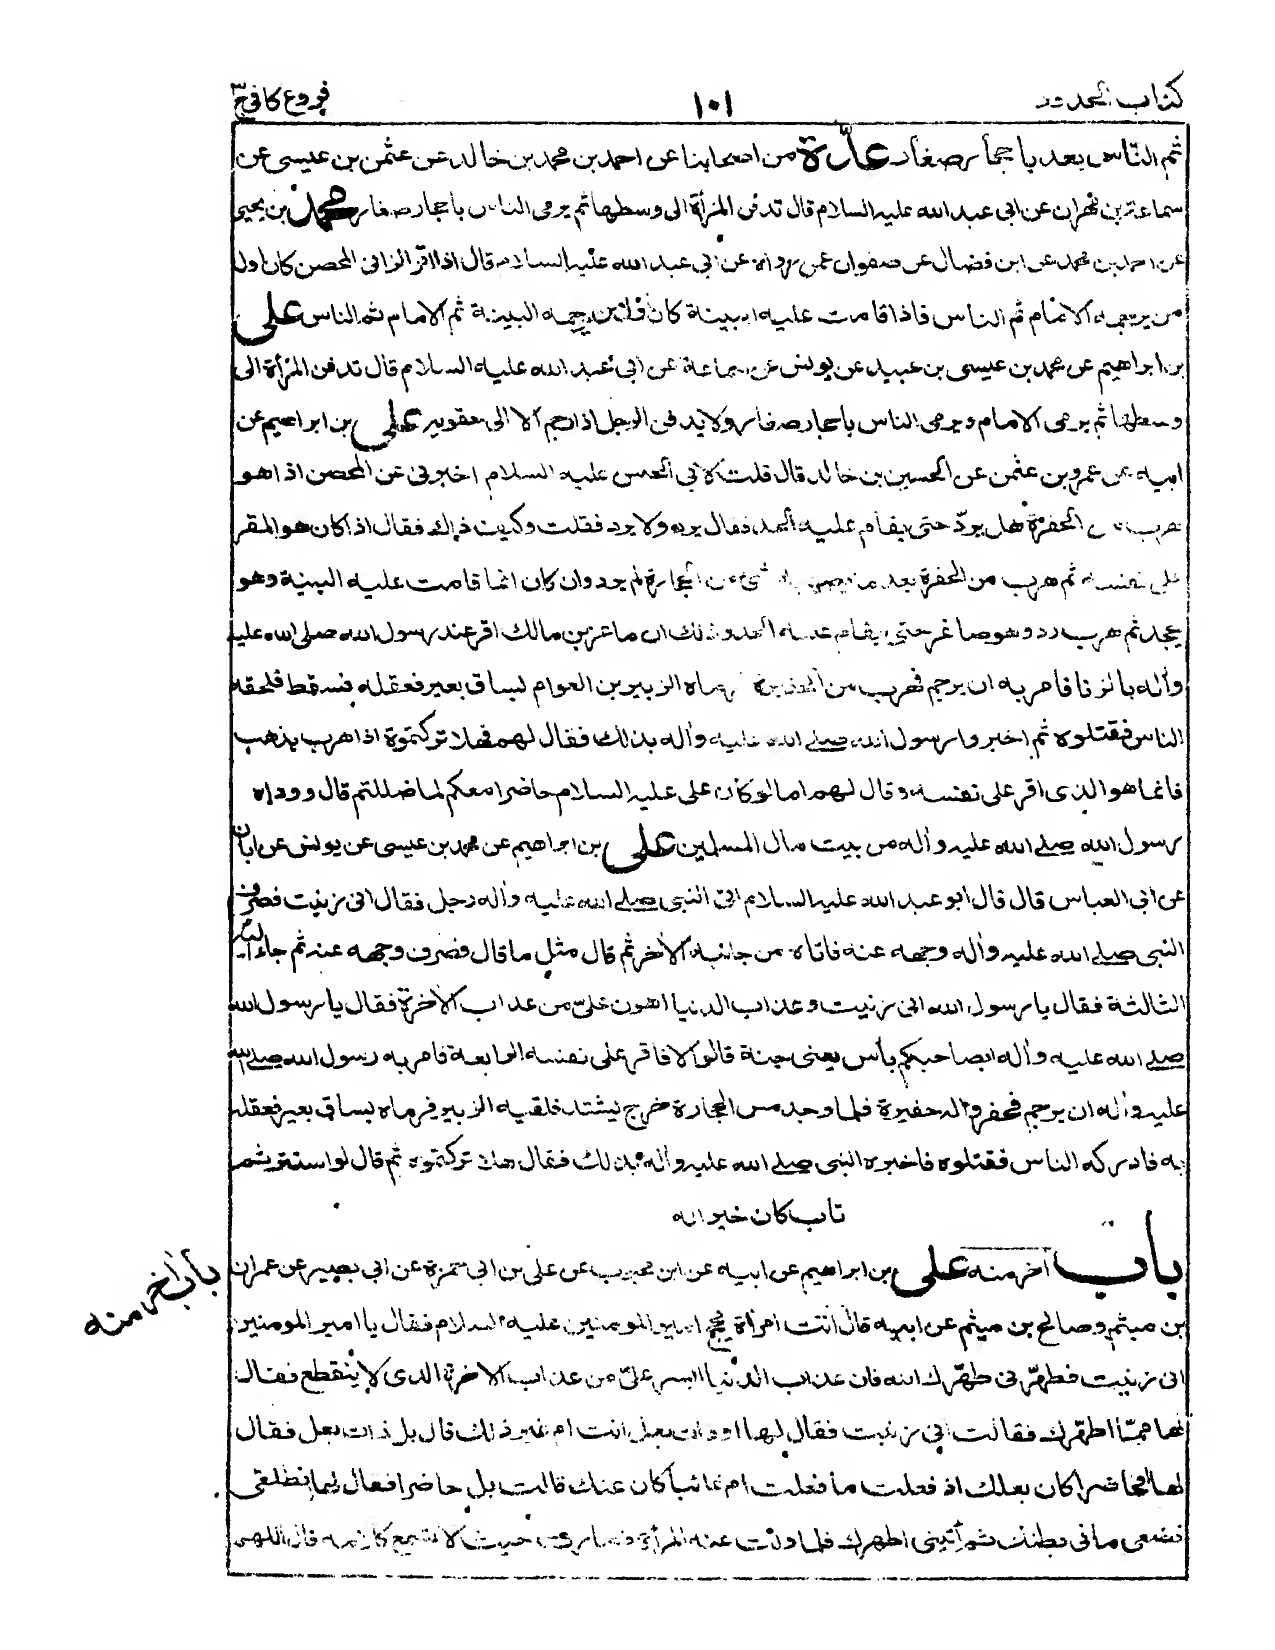 كتاب الحدود
١٠١
فروع كافي ج ٣
ثم الناس بعد باحجار صغار عدة من اصحابنا عن احمد بن محمد بن خالد عن عثمن بن عيسى عن
سماعة بن مهران عن ابي عبد الله عليه السلام قال تدفن المرأة الى وسطها ثم يرمى الناس باحجار صغار محمد بن يحيى
عن احمد بن محمد عن ابن فضال عن صفوان عمن رواه عن ابي عبد الله عليه السلام قال اذا اقر الزاني المحصن كان اول
من يرجمه الامام ثم الناس فاذا قامت عليه البينة كان اول من يرجمه البينة ثم الامام ثم الناس علي
بن ابراهيم عن محمد بن عيسى بن عبيد عن يونس عن سماعة عن ابي عبد الله عليه السلام قال تدفن المرأة الى
وسطها ثم يرمى الامام ويرمى الناس باحجار صغار ولا يدفن الرجل اذا رجم الا الى حقويه علي بن ابراهيم عن
ابيه عن عمرو بن عثمن عن الحسين بن خالد قال قلت لابي الحسن عليه السلام اخبرني عن المحصن اذا هو
هرب من الحفرة هل يردّ حتى يقام عليه الحد فقال يرد ولا يرد فقلت وكيف ذلك فقال اذا كان هو المقر
على نفسه ثم هرب من الحفرة بعد ما يصيبه شئ من الحجارة لم يرد وان كان انما قامت عليه البينة وهو
يجحد ثم هرب رد وهو صاغر حتى يقام عليه الحد وذلك ان ماعز بن مالك اقر عند رسول الله صلى الله عليه
واله بالزنا فامر به ان يرجم فهرب من الحفيرة فرماه الزبير بن العوام بساق بعير فعقله فسقط فلحقه
الناس فقتلوه ثم اخبروا رسول الله صلى الله عليه واله بذلك فقال لهم فهلا تركتموه اذا هرب يذهب
فانما هو الذى اقر على نفسه وقال لهم اما لو كان على عليه السلام حاضرا معكم لما ضللتم قال ووداه
رسول الله صلى الله عليه واله من بيت مال المسلمين علي بن ابراهيم عن محمد بن عيسى عن يونس عن ابان
عن ابى العباس قال قال ابو عبد الله عليه السلام اتى النبى صلى الله عليه واله رجل فقال انى زنيت فصرف
النبى صلى الله عليه واله وجهه عنه فاتاه من جانبه الآخر ثم قال مثل ما قال فصرف وجهه عنه ثم جاء اليه
الثالثة فقال يا رسول الله انى زنيت وعذاب الدنيا اهون علىّ من عذاب الآخرة فقال يا رسول الله
صلى الله عليه واله ابصاحبكم بأس يعنى جنة قالوا لا فاقر على نفسه الرابعة فامر به رسول الله صلى الله
عليه واله ان يرجم فحفروا له حفيرة فلما وجد مس الحجارة خرج يشتد فلقيه الزبير فرماه بساق بعير فعقله
به فادركه الناس فقتلوه فاخبروه النبى صلى الله عليه واله بذلك فقال هلا تركتموه ثم قال لو استتر ثم
تاب كان خيرا له
باب آخر منه علي بن ابراهيم عن ابيه عن ابن محبوب عن على بن ابى حمزة عن ابى بصير عن عمران
باب آخر منه
بن ميثم وصالح بن ميثم عن ابيه قال أتت امرأة مجح امير المومنين عليه السلام فقال يا امير المومنين
انى زنيت فطهّرنى طهّرك الله فان عذاب الدنيا ايسر علىّ من عذاب الآخرة الذى لا ينقطع فقال
لها ممّا اطهّرك فقالت انى زنيت فقال لها او ذات بعل انت ام غير ذلك قال بل ذات بعل فقال
لها افحاضرا كان بعلك اذ فعلت ما فعلت ام غائباً كان عنك قالت بل حاضرا فقال لها انطلقى
فضعى ما فى بطنك ثم أتينى اطهرك فلما ولت عنه المرأة فصارت حيث لا تسمع كلامه قال اللهم